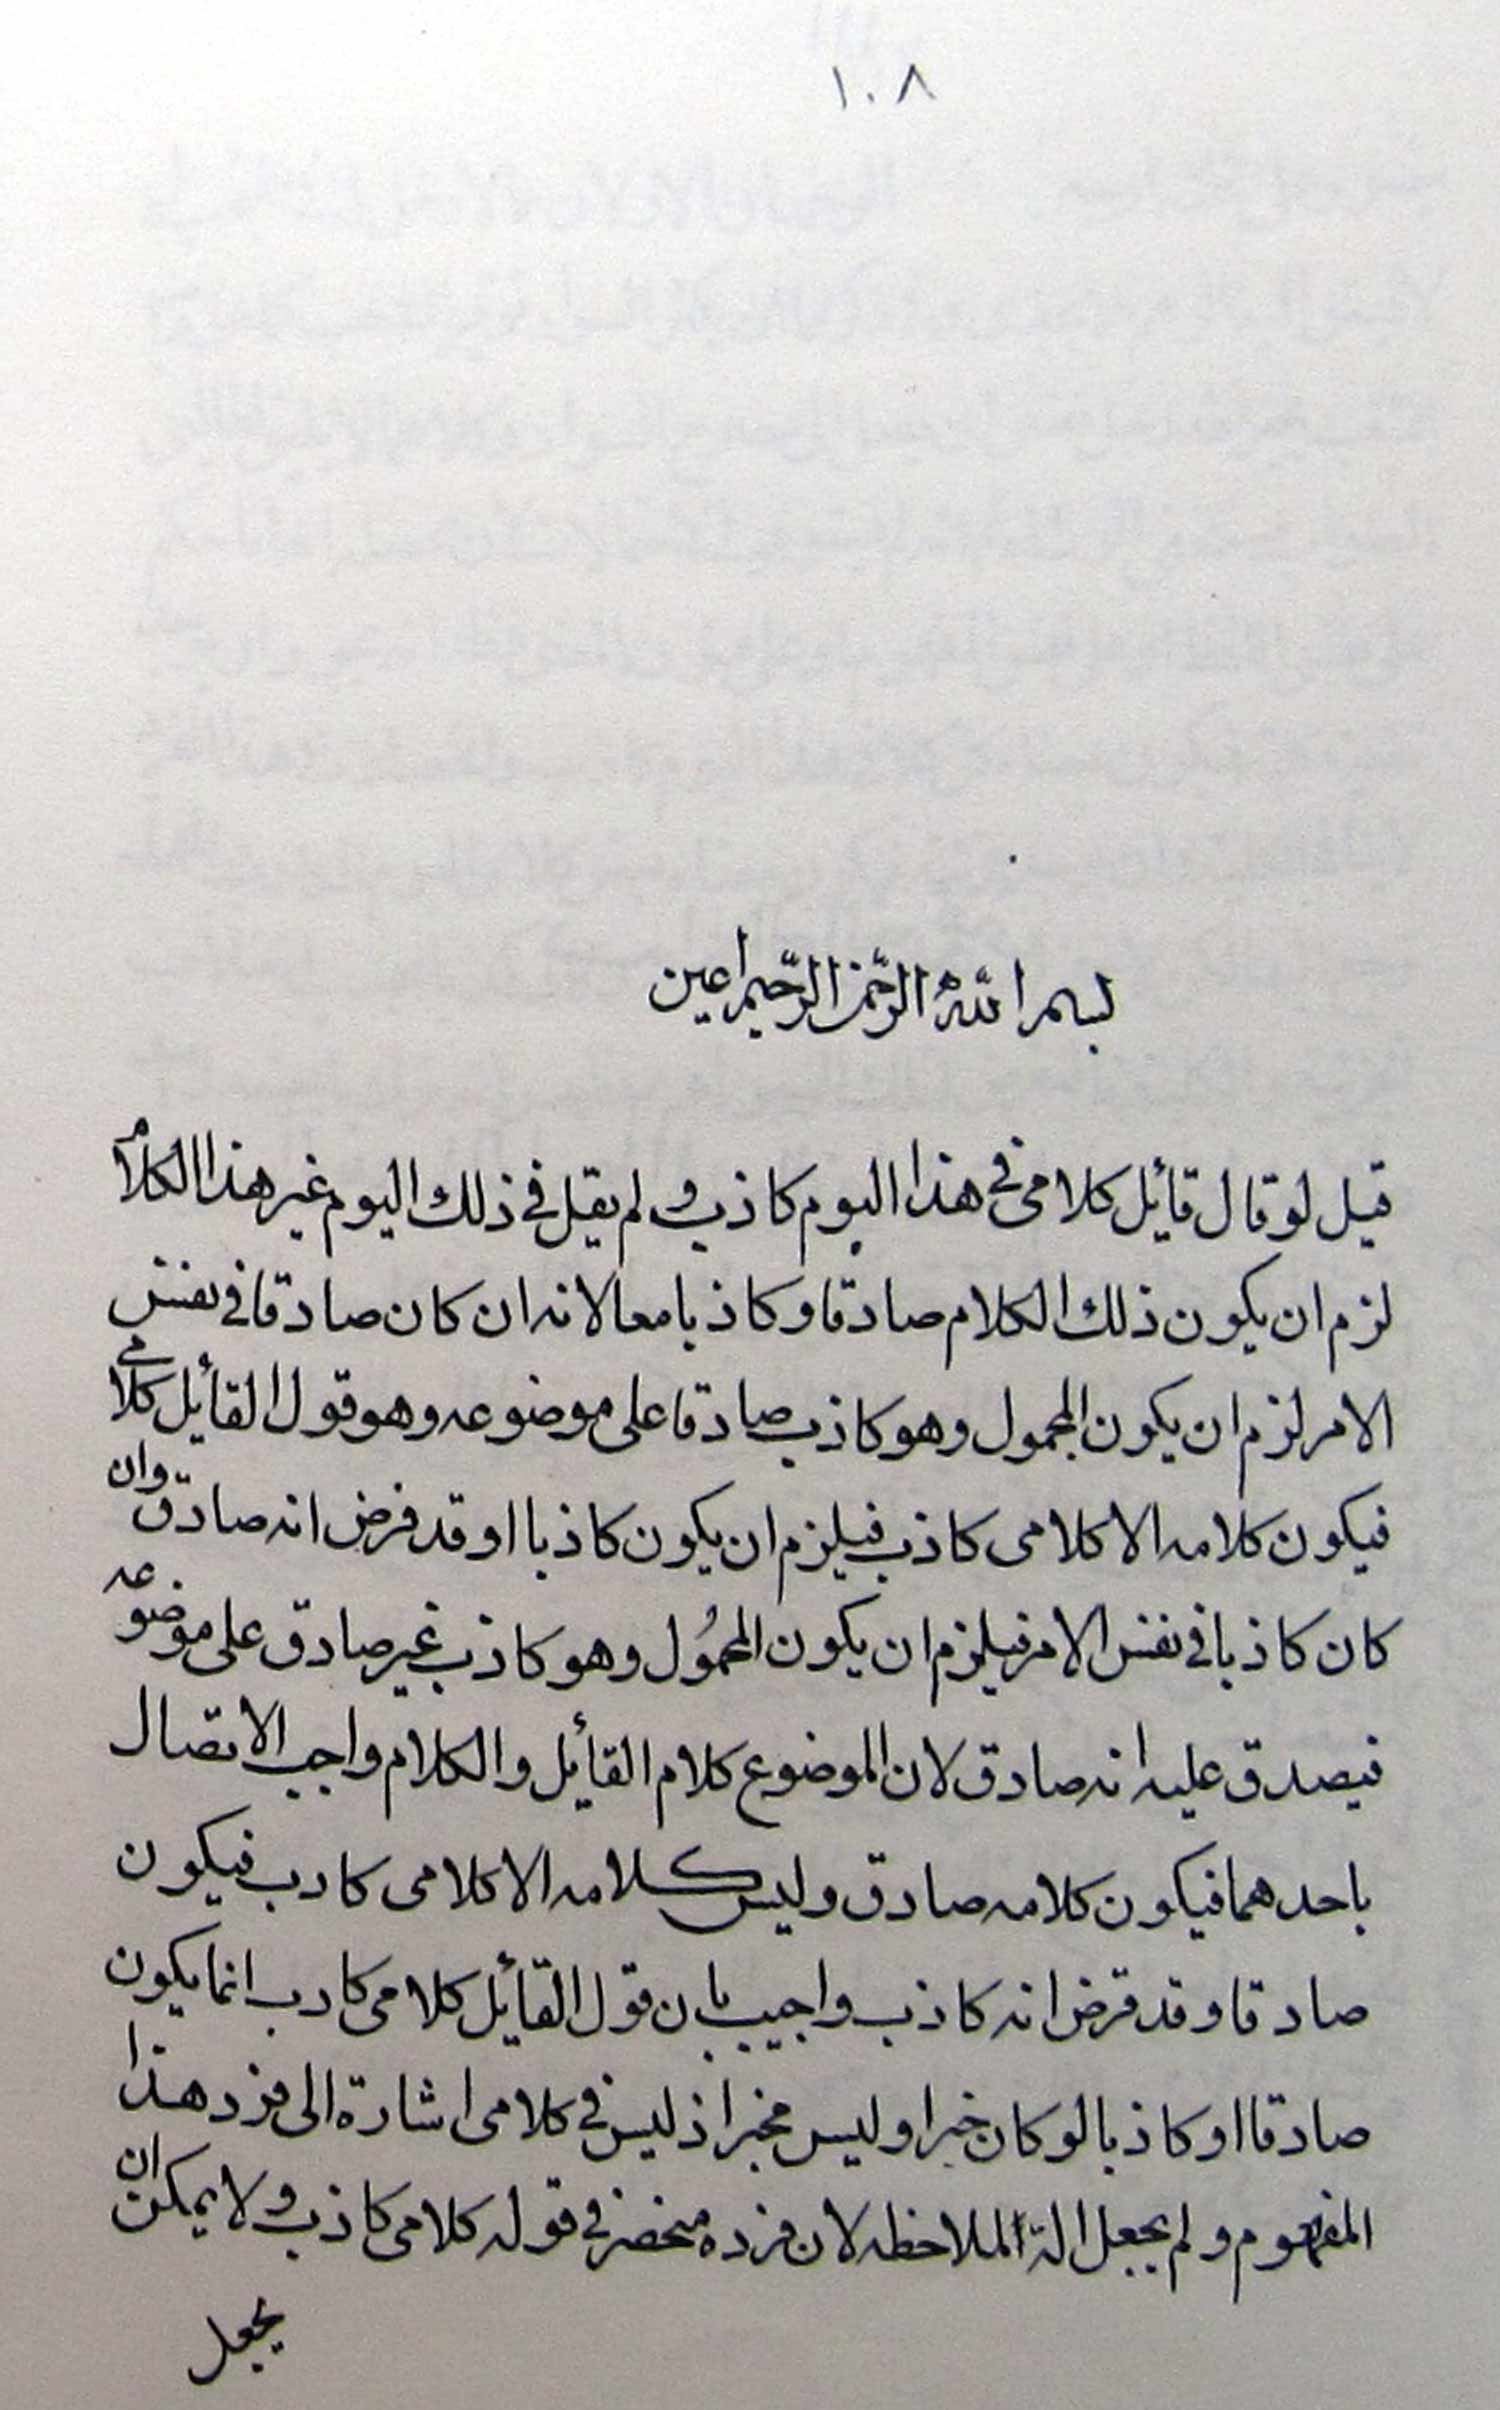 ١٠٨
بسم الله الرّحمن الرّحيم اعين
قيل لو قال قائل كلامى فى هذا اليوم كاذب و لم يقل فى ذلك اليوم غير هذا الكلام
لزم ان يكون ذلك الكلام صادقا و كاذبا معا لانه ان كان صادقا فى نفس
الامر لزم ان يكون المحمول وهو كاذب صادقا على موضوعه وهو قول القائل كلامى
فيكون كلامه الا كلامى كاذب فيلزم ان يكون كاذبا او قد فرض انه صادق وان
كان كاذبا فى نفس الامر فيلزم ان يكون المحمُول وهو كاذب غير صادق على موضوعه
فيصدق عليه انه صادق لان الموضوع كلام القائل والكلام واجب الاتصال
باحدهما فيكون كلامه صادق وليس كلامه الا كلامى كادب فيكون
صادقا وقد قرض انه كاذب واجيب بان قول القائل كلامى كادب انما يكون
صادقا او كاذبا لو كان خبرا وليس مخبرا ذ ليس فى كلامى اشارة الى فرد هذا
المفهوم و لم يجعل الة الملاحظه لان فرده منحصر فى قوله كلامى كاذب و لا يمكن ان
يجعل